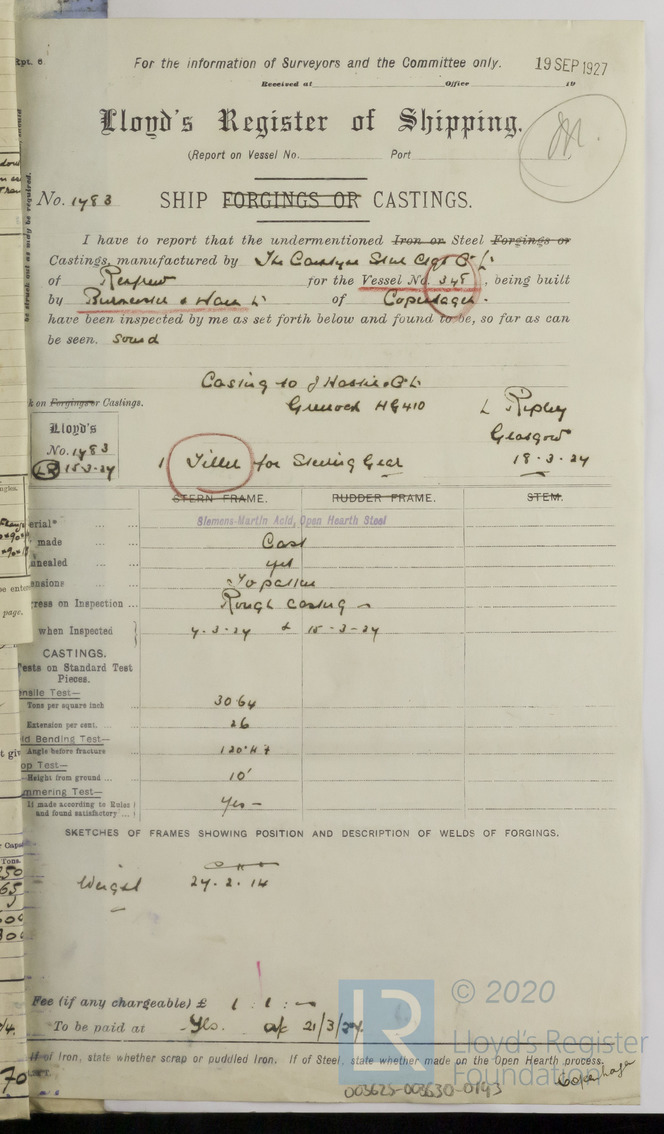 Rpt. 6
For the information of Surveyors and the Committee only.
19 SEP 1927
Received at Office 19
Lloyd's Register of Shipping.
(Report on Vessel No. Port
No. 1483 SHIP FORGINGS OR CASTINGS.
I have to report that the undermentioned Iron or Steel Forgings or
Castings, manufactured by The Steel Co Ld
of Renfrew for the Vessel No. 348, being built
by Burmeister & Wain Ld of Copenhagen.
have been inspected by me as set forth below and found to be, so far as can
be seen. Sound
Casting to J Hastie & Co Ld
k on Forgings or Castings.
Greenock HG410
L Ripley
Glasgow
18-3-27
Lloyd's
No. 1483
LR 15-3-27
1 Tiller for Steering Gear
STERN FRAME. RUDDER FRAME. STEM.
erial*
Siemens-Martin Acid, Open Hearth Steel
made Cast
nnealed yes
ensions To pattern
ress on Inspection ... Rough Casting
when Inspected 7-3-27 & 15-3-27
CASTINGS.
Tests on Standard Test
Pieces.
ensile Test—
Tons per square inch 30.64
Extension per cent. 26
ld Bending Test—
Angle before fracture 120°
op Test—
Height from ground ... 10'
mmering Test—
If made according to Rules
and found satisfactory ... Yes
SKETCHES OF FRAMES SHOWING POSITION AND DESCRIPTION OF WELDS OF FORGINGS.
Weight 27.2.14
Fee (if any chargeable) £ 1 : 1 : -
To be paid at Gls. a/c 21/3/27.
If of Iron, state whether scrap or puddled Iron. If of Steel, state whether made on the Open Hearth process.
Copenhagen
003625-003630-0193
LR
© 2020
Lloyd's Register
Foundation